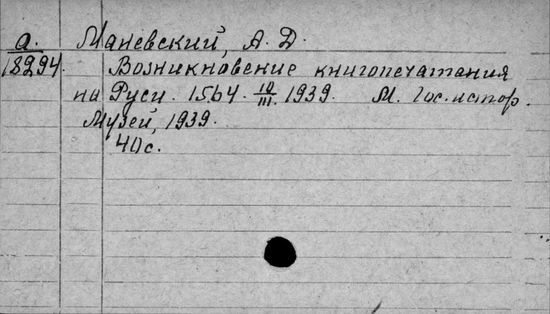 а. Маневский, А. Д.
18294. Возникновение книгопечатания
на Руси. 1564. 19/III. 1939. М. Гос. истор.
Музей, 1939.
40 с.